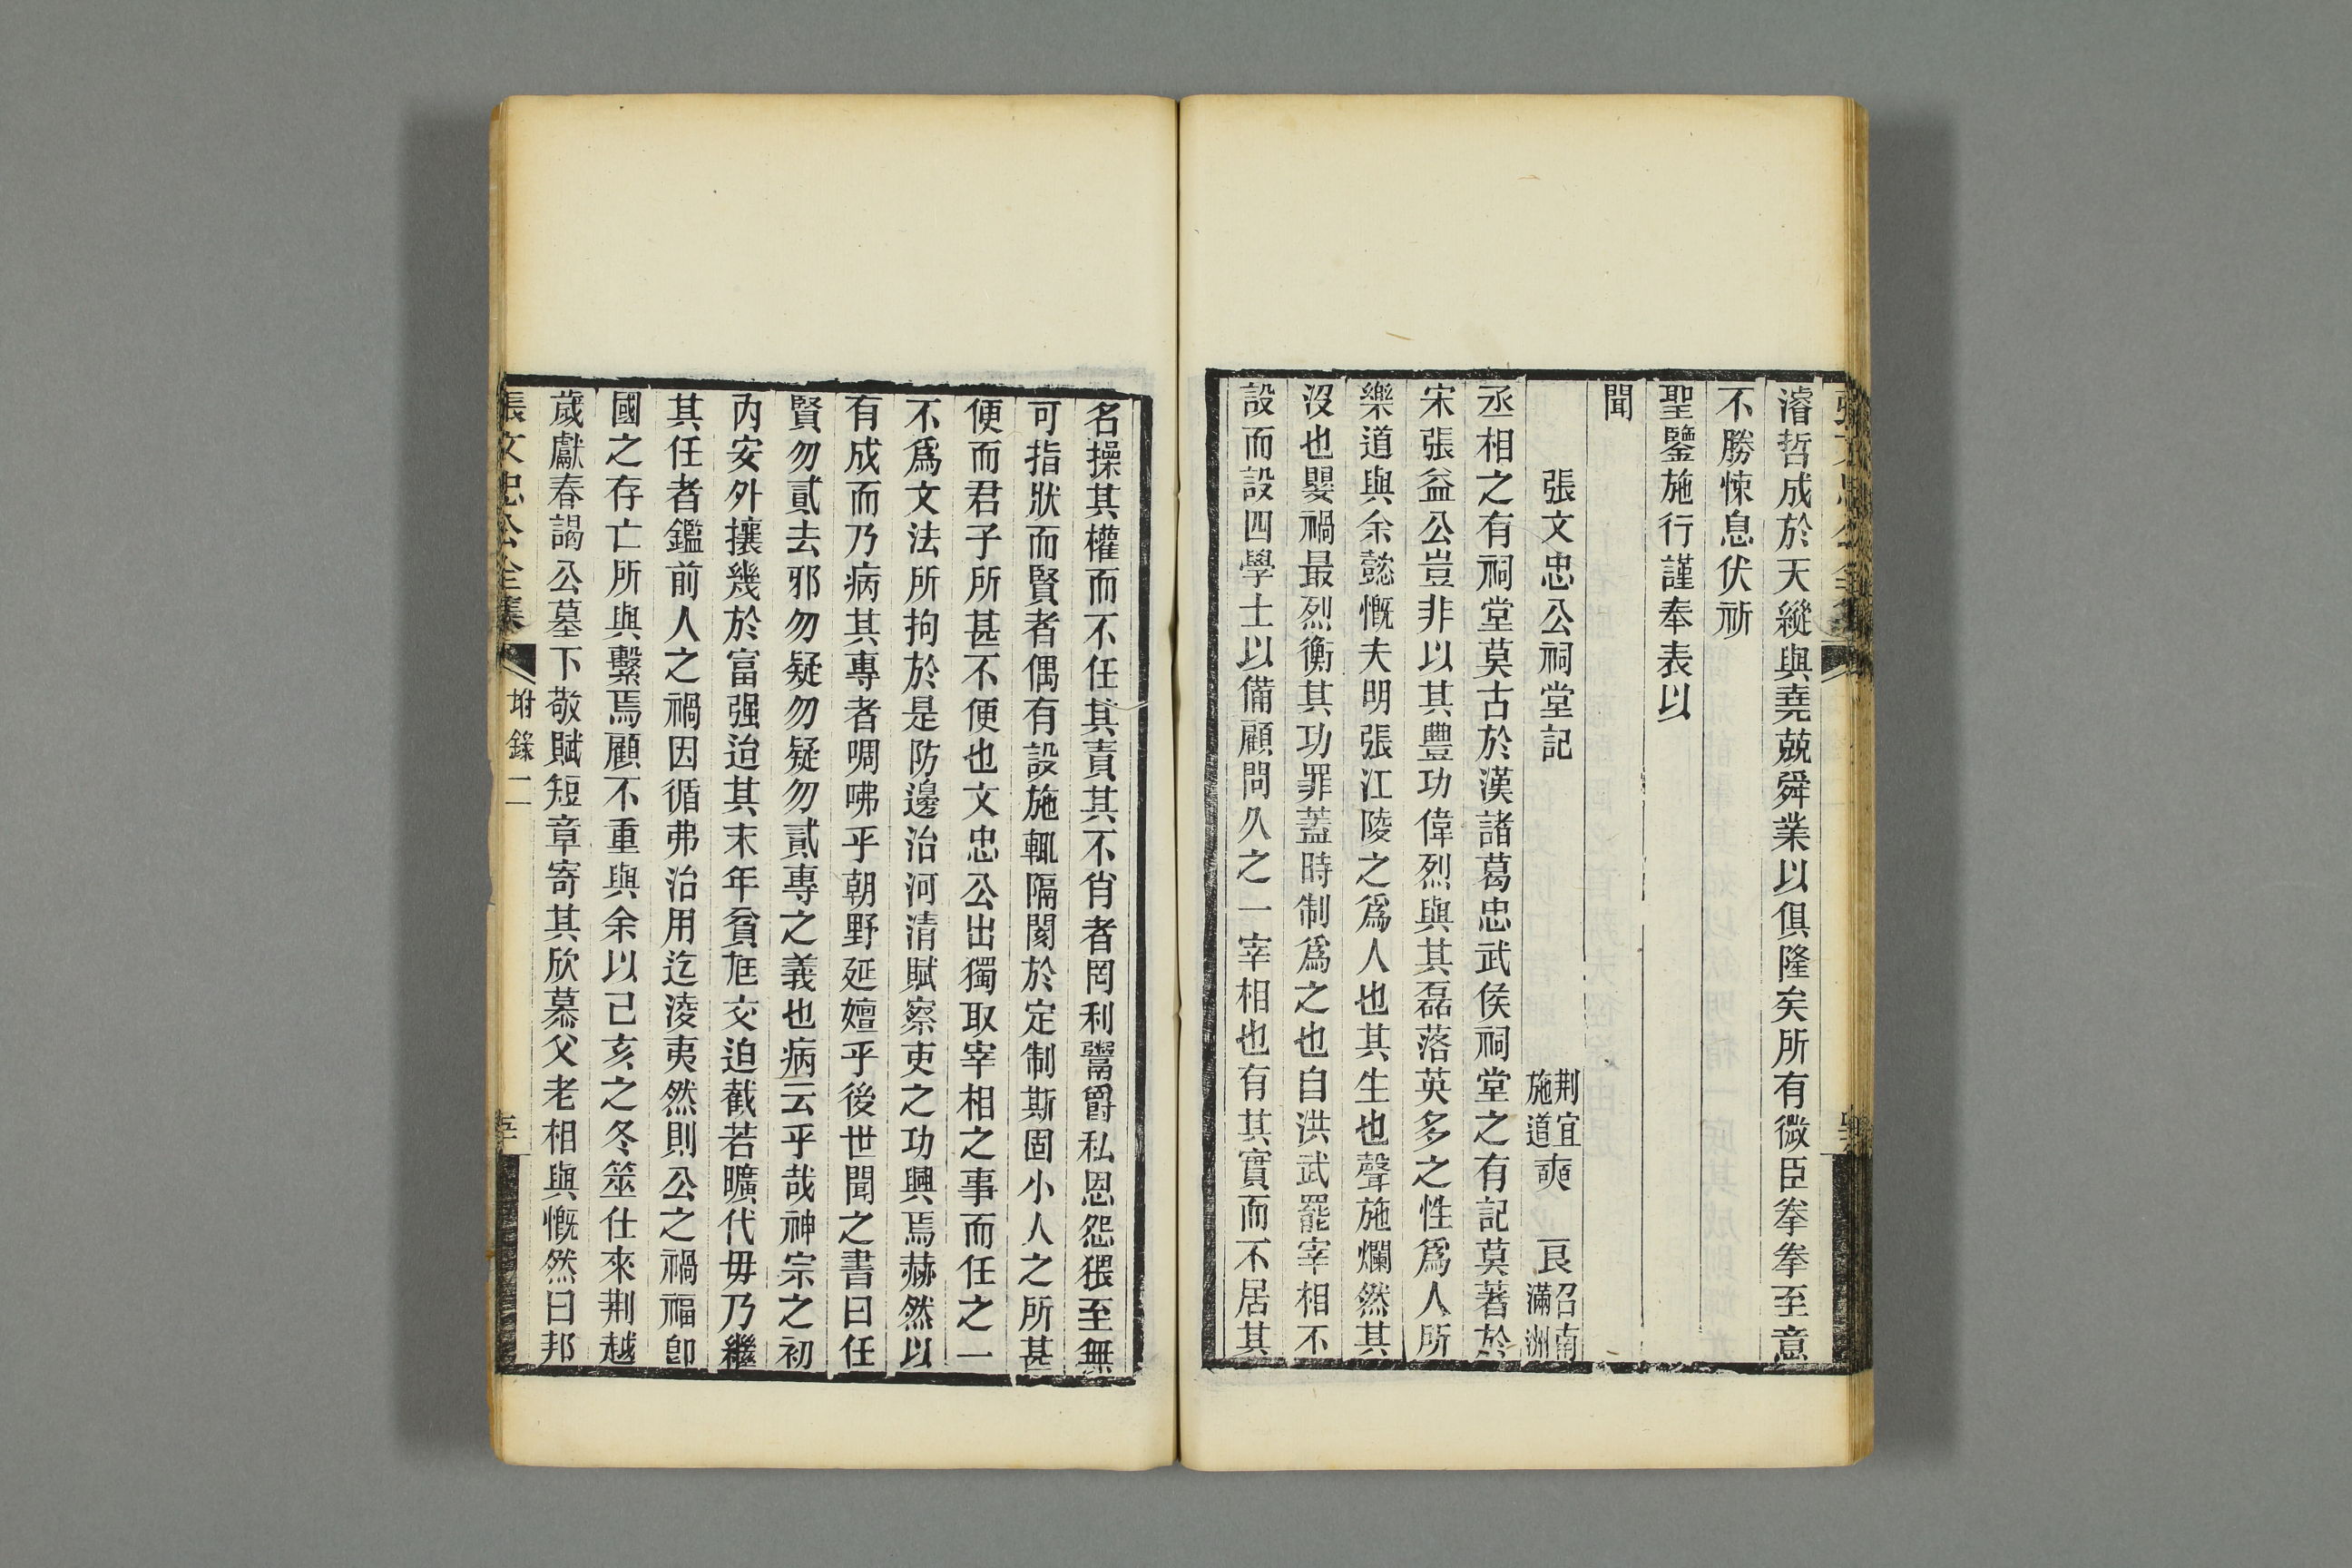 濬哲成於天縱與堯兢舜業以俱隆矣所有微臣拳拳至意
不勝悚息伏祈
聖鑒施行謹奉表以
聞
張文忠公祠堂記
荆宜
施道
奭
良
召南
滿洲
丞相之有祠堂莫古於漢諸葛忠武侯祠堂之有記莫著於
宋張益公豈非以其豐功偉烈與其磊落英多之性爲人所
樂道與余懿慨夫明張江陵之爲人也其生也聲施爛然其
沒也嬰禍最烈衡其功罪蓋時制爲之也自洪武罷宰相不
設而設四學士以備顧問久之一宰相也有其實而不居其
名操其權而不任其責其不肖者罔利鬻爵私恩怨猥至無
可指狀而賢者偶有設施輒隔閡於定制斯固小人之所甚
便而君子所甚不便也文忠公出獨取宰相之事而任之一
不爲文法所拘於是防邊治河清賦察吏之功興焉赫然以
有成而乃病其專者啁咈乎朝野延嬗乎後世聞之書曰任
賢勿貳去邪勿疑勿疑勿貳專之義也病云乎哉神宗之初
內安外攘幾於富强迨其末年貧尪交迫截若曠代毋乃繼
其任者鑑前人之禍因循弗治用迄淩夷然則公之禍福卽
國之存亡所與繫焉顧不重與余以己亥之冬筮仕來荆越
歲獻春謁公墓下敬賦短章寄其欣慕父老相與慨然曰邦
張文忠公全集
附錄二